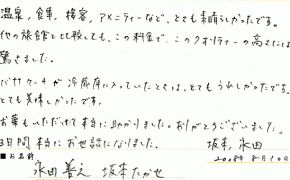 温泉，食事，接客，アメニティーなど、とても素晴らしかったです。
他の旅館と比較しても、この料金で、このクオリティーの高さには
驚きました。
バザケーキが冷蔵庫に入っていたときは、とてもうれしかったです。
とても美味しかったです。
お薬もいただけて本当に助かりました。ありがとうございました。
3日間 本当にお世話になりました。 坂本、永田
■お名前 2008年8月10日
永田 善之 坂本 たかせ